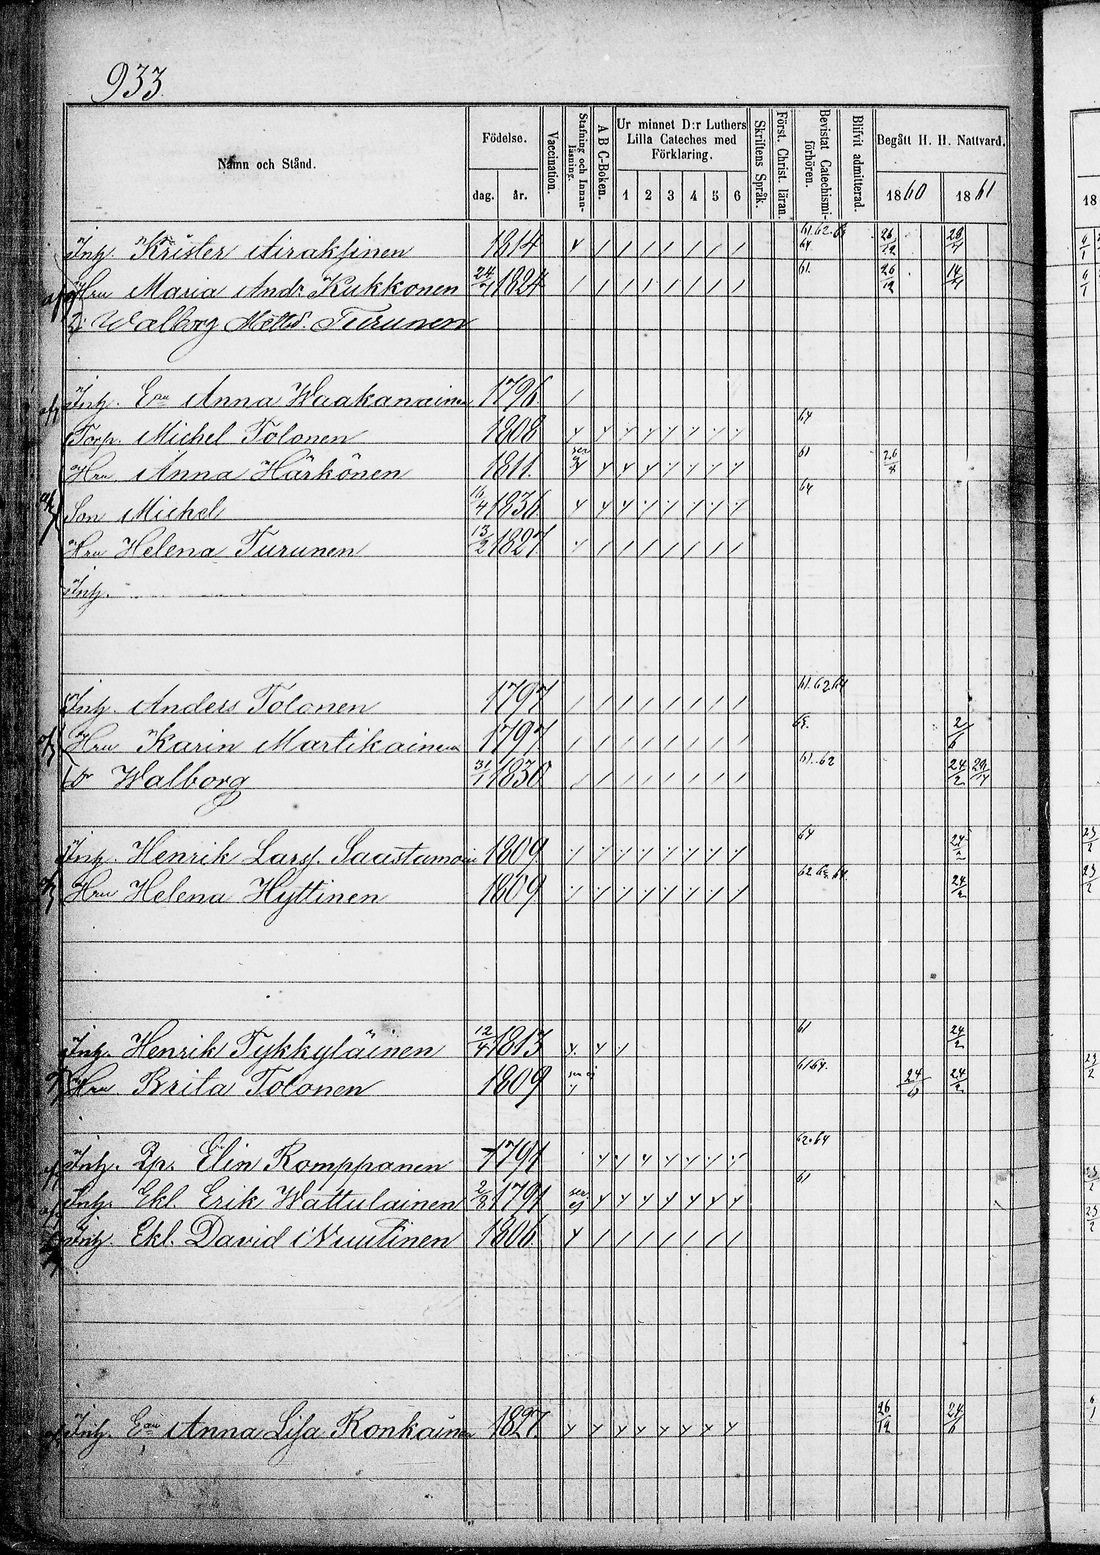 933
Namn och Stånd.
Födelse.
dag.
år.
Vaccination.
Stafning och Innan-läsning.
A B C-Boken.
Ur minnet D:r Luthers Lilla Cateches med Förklaring.
1 2 3 4 5 6
Skriftens Språk.
Först. Christ. läran.
Bevistat Catechismi-förhören.
Blifvit admitterad.
Begått H. H. Nattvard.
1860
1861
18
Inh. Krister Airaksinen 1814 61. 62. 64 26/12 28/4
Hru Maria Andr. Kukkonen 24/4 1824 61. 26/12 14/4
D: Walborg Matts. Turunen
Inh. Ean Anna Waakanainen 1796
Torp. Michel Tolonen 1808 64
Hru Anna Härkönen 1811. 61
Son Michel 16/4 1836 64
Hru Helena Turunen 13/2 1827
Inh.
Inh. Anders Tolonen 1797 61. 62 64
Hru Karin Martikainen 1797 2/6
Dr Walborg 31/1 1830 61. 62 24/2 29/4
Inh. Henrik Larsf. Saastamoin 1809 64 24/2
Hru Helena Hyttinen 1809 62 63. 64. 24/2
Inh. Henrik Tykkyläinen 12/4 1813 61 24/2
Hru Brita Tolonen 1809 61 64. 24/6 24/2
Inh. Qp. Elin Romppanen 1791 62. 64
Inh. Ekl. Erik Wattulainen 2/8 1791 61
Inh. Ekl. David Nuutinen 1806
Inh. Ean Anna Lisa Ronkainen 1827. 26/12 24/6